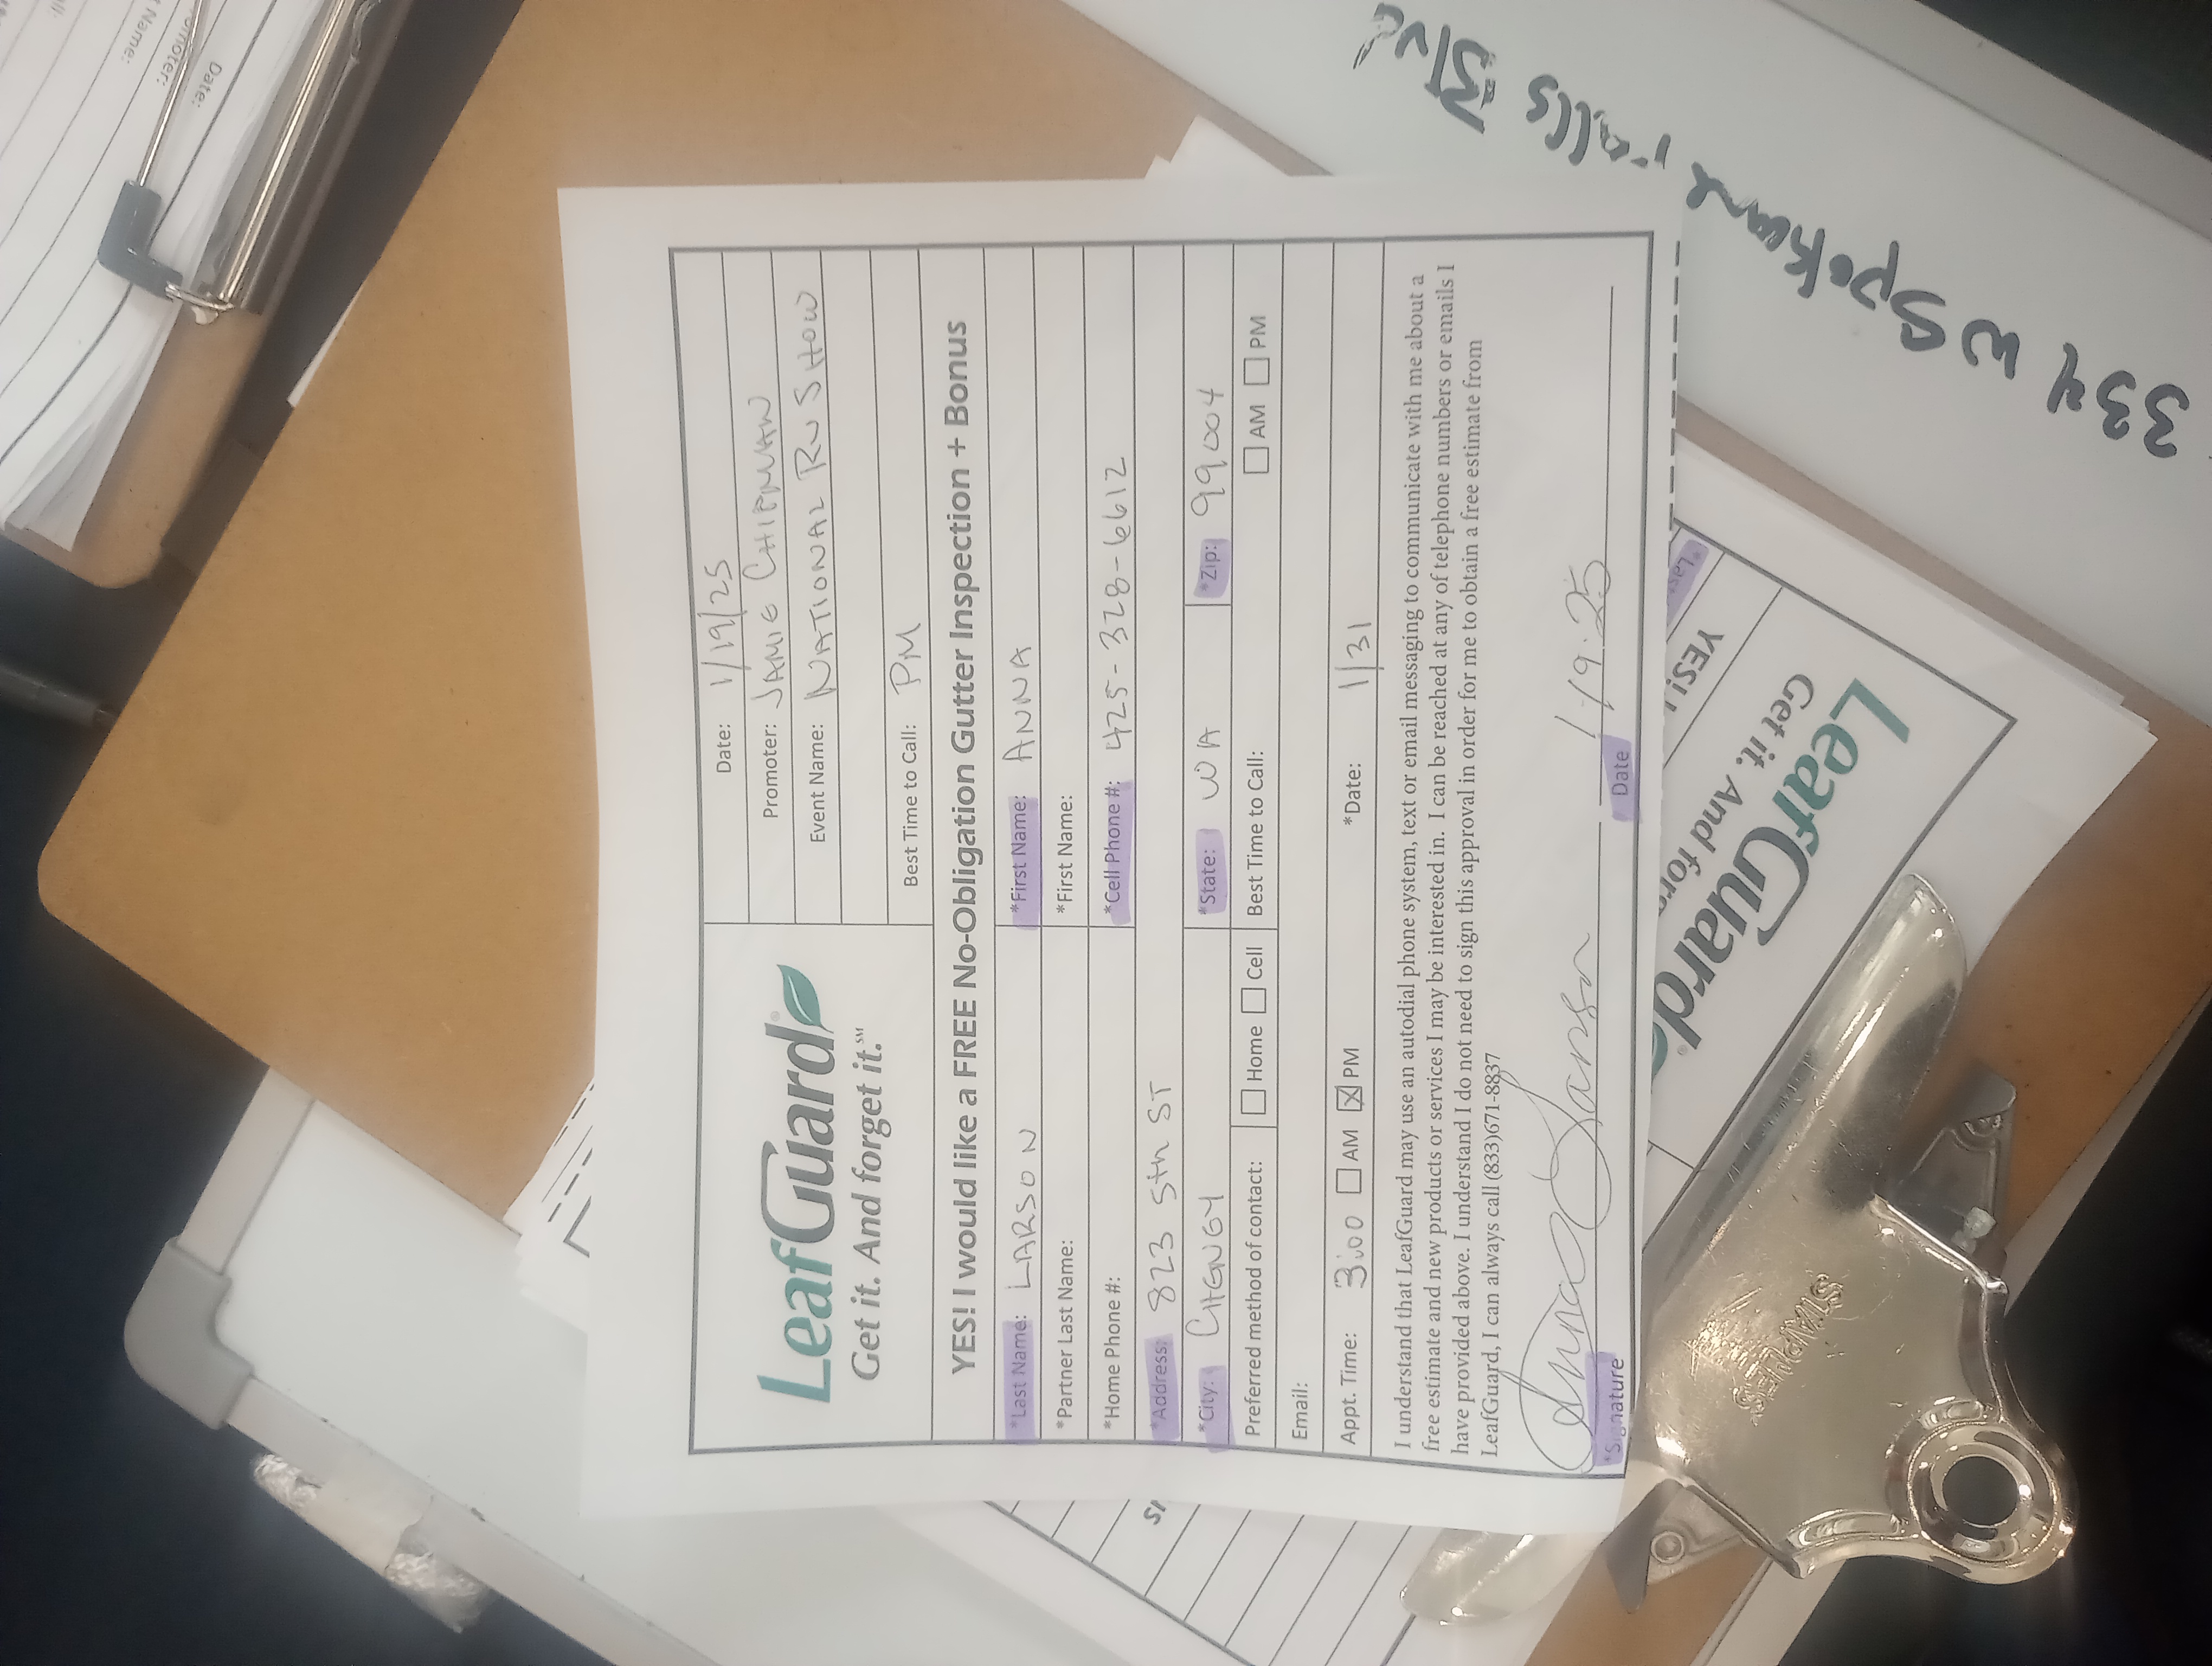 Name:
Promoter:
Date:
LeafGuard®
Get it. And forget it.℠
Date: 1/19/25
Promoter: JAMIE CHIPMAN
Event Name: NATIONAL RV SHOW
Best Time to Call: PM
YES! I would like a FREE No-Obligation Gutter Inspection + Bonus
*Last Name: LARSON *First Name: ANNA
*Partner Last Name: *First Name:
*Home Phone #: *Cell Phone #: 425-328-6612
*Address: 823 5th ST
*City: CHENEY *State: WA *Zip: 99004
Preferred method of contact: Home Cell Best Time to Call: AM PM
Email:
Appt. Time: 3:00 AM PM *Date: 1/31
I understand that LeafGuard may use an autodial phone system, text or email messaging to communicate with me about a
free estimate and new products or services I may be interested in. I can be reached at any of telephone numbers or emails I
have provided above. I understand I do not need to sign this approval in order for me to obtain a free estimate from
LeafGuard, I can always call (833)671-8837
Anna Larson 1/19.25
*Signature Date
LeafGuard
Get it. And
YES!
*Last
STAPLES
334 W Spokane Falls Blvd